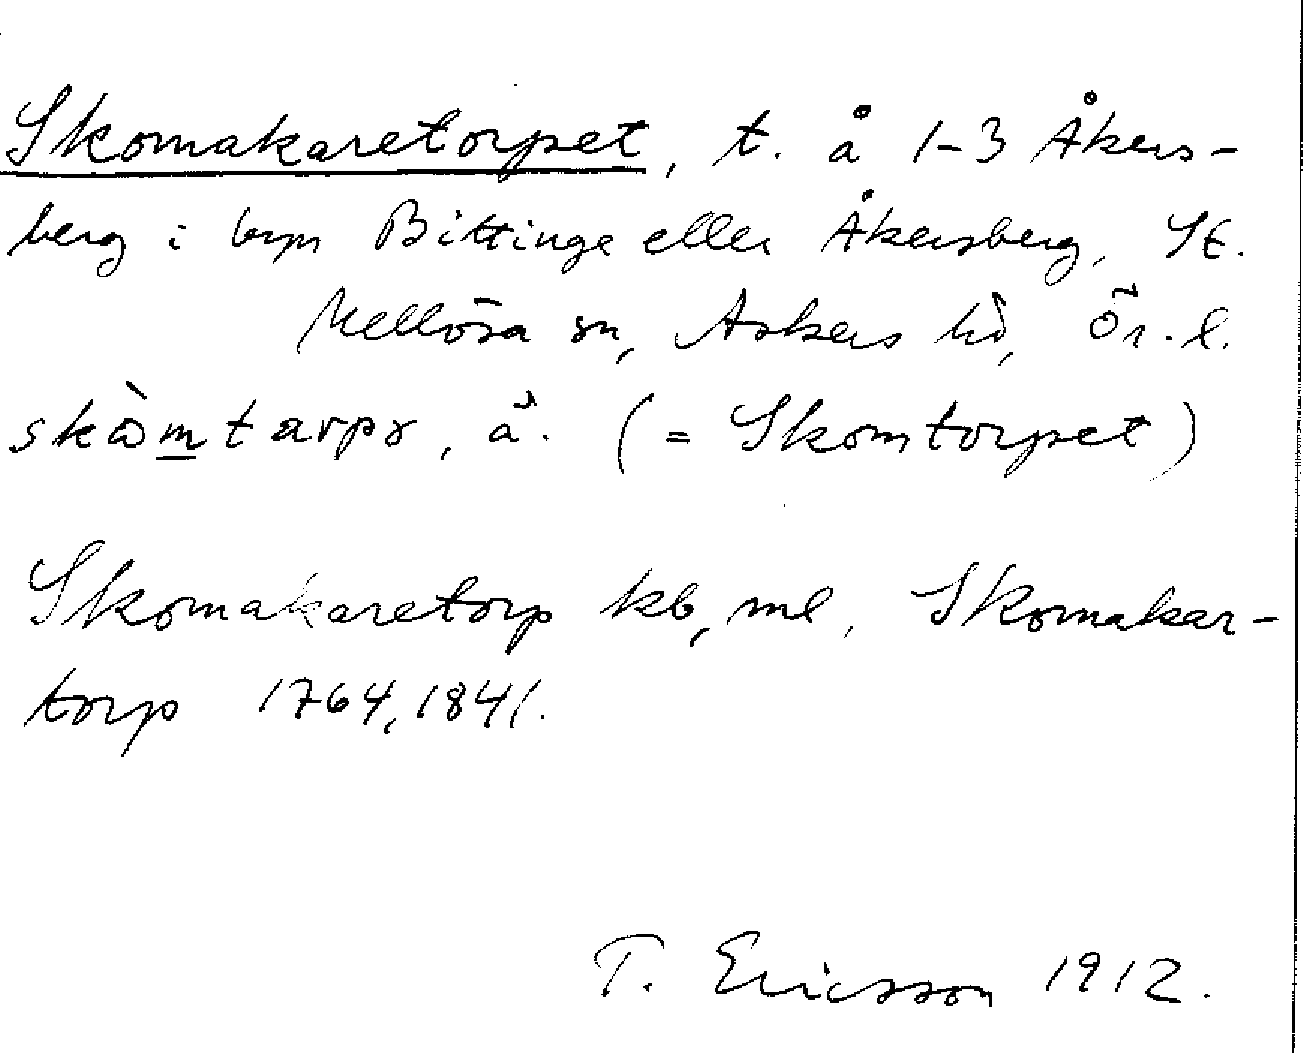 Skomakaretorpet, t. å 1-3 Åkers-
berg i byn Bittinge eller Åkersberg, St.
Mellösa sn, Askers hd, Ör. l.
skòmtarpr, å. (= Skomtorpet)
Skomakaretorp kb, ml, Skomakar-
torp 1764, 1841.
T. Ericsson 1912.